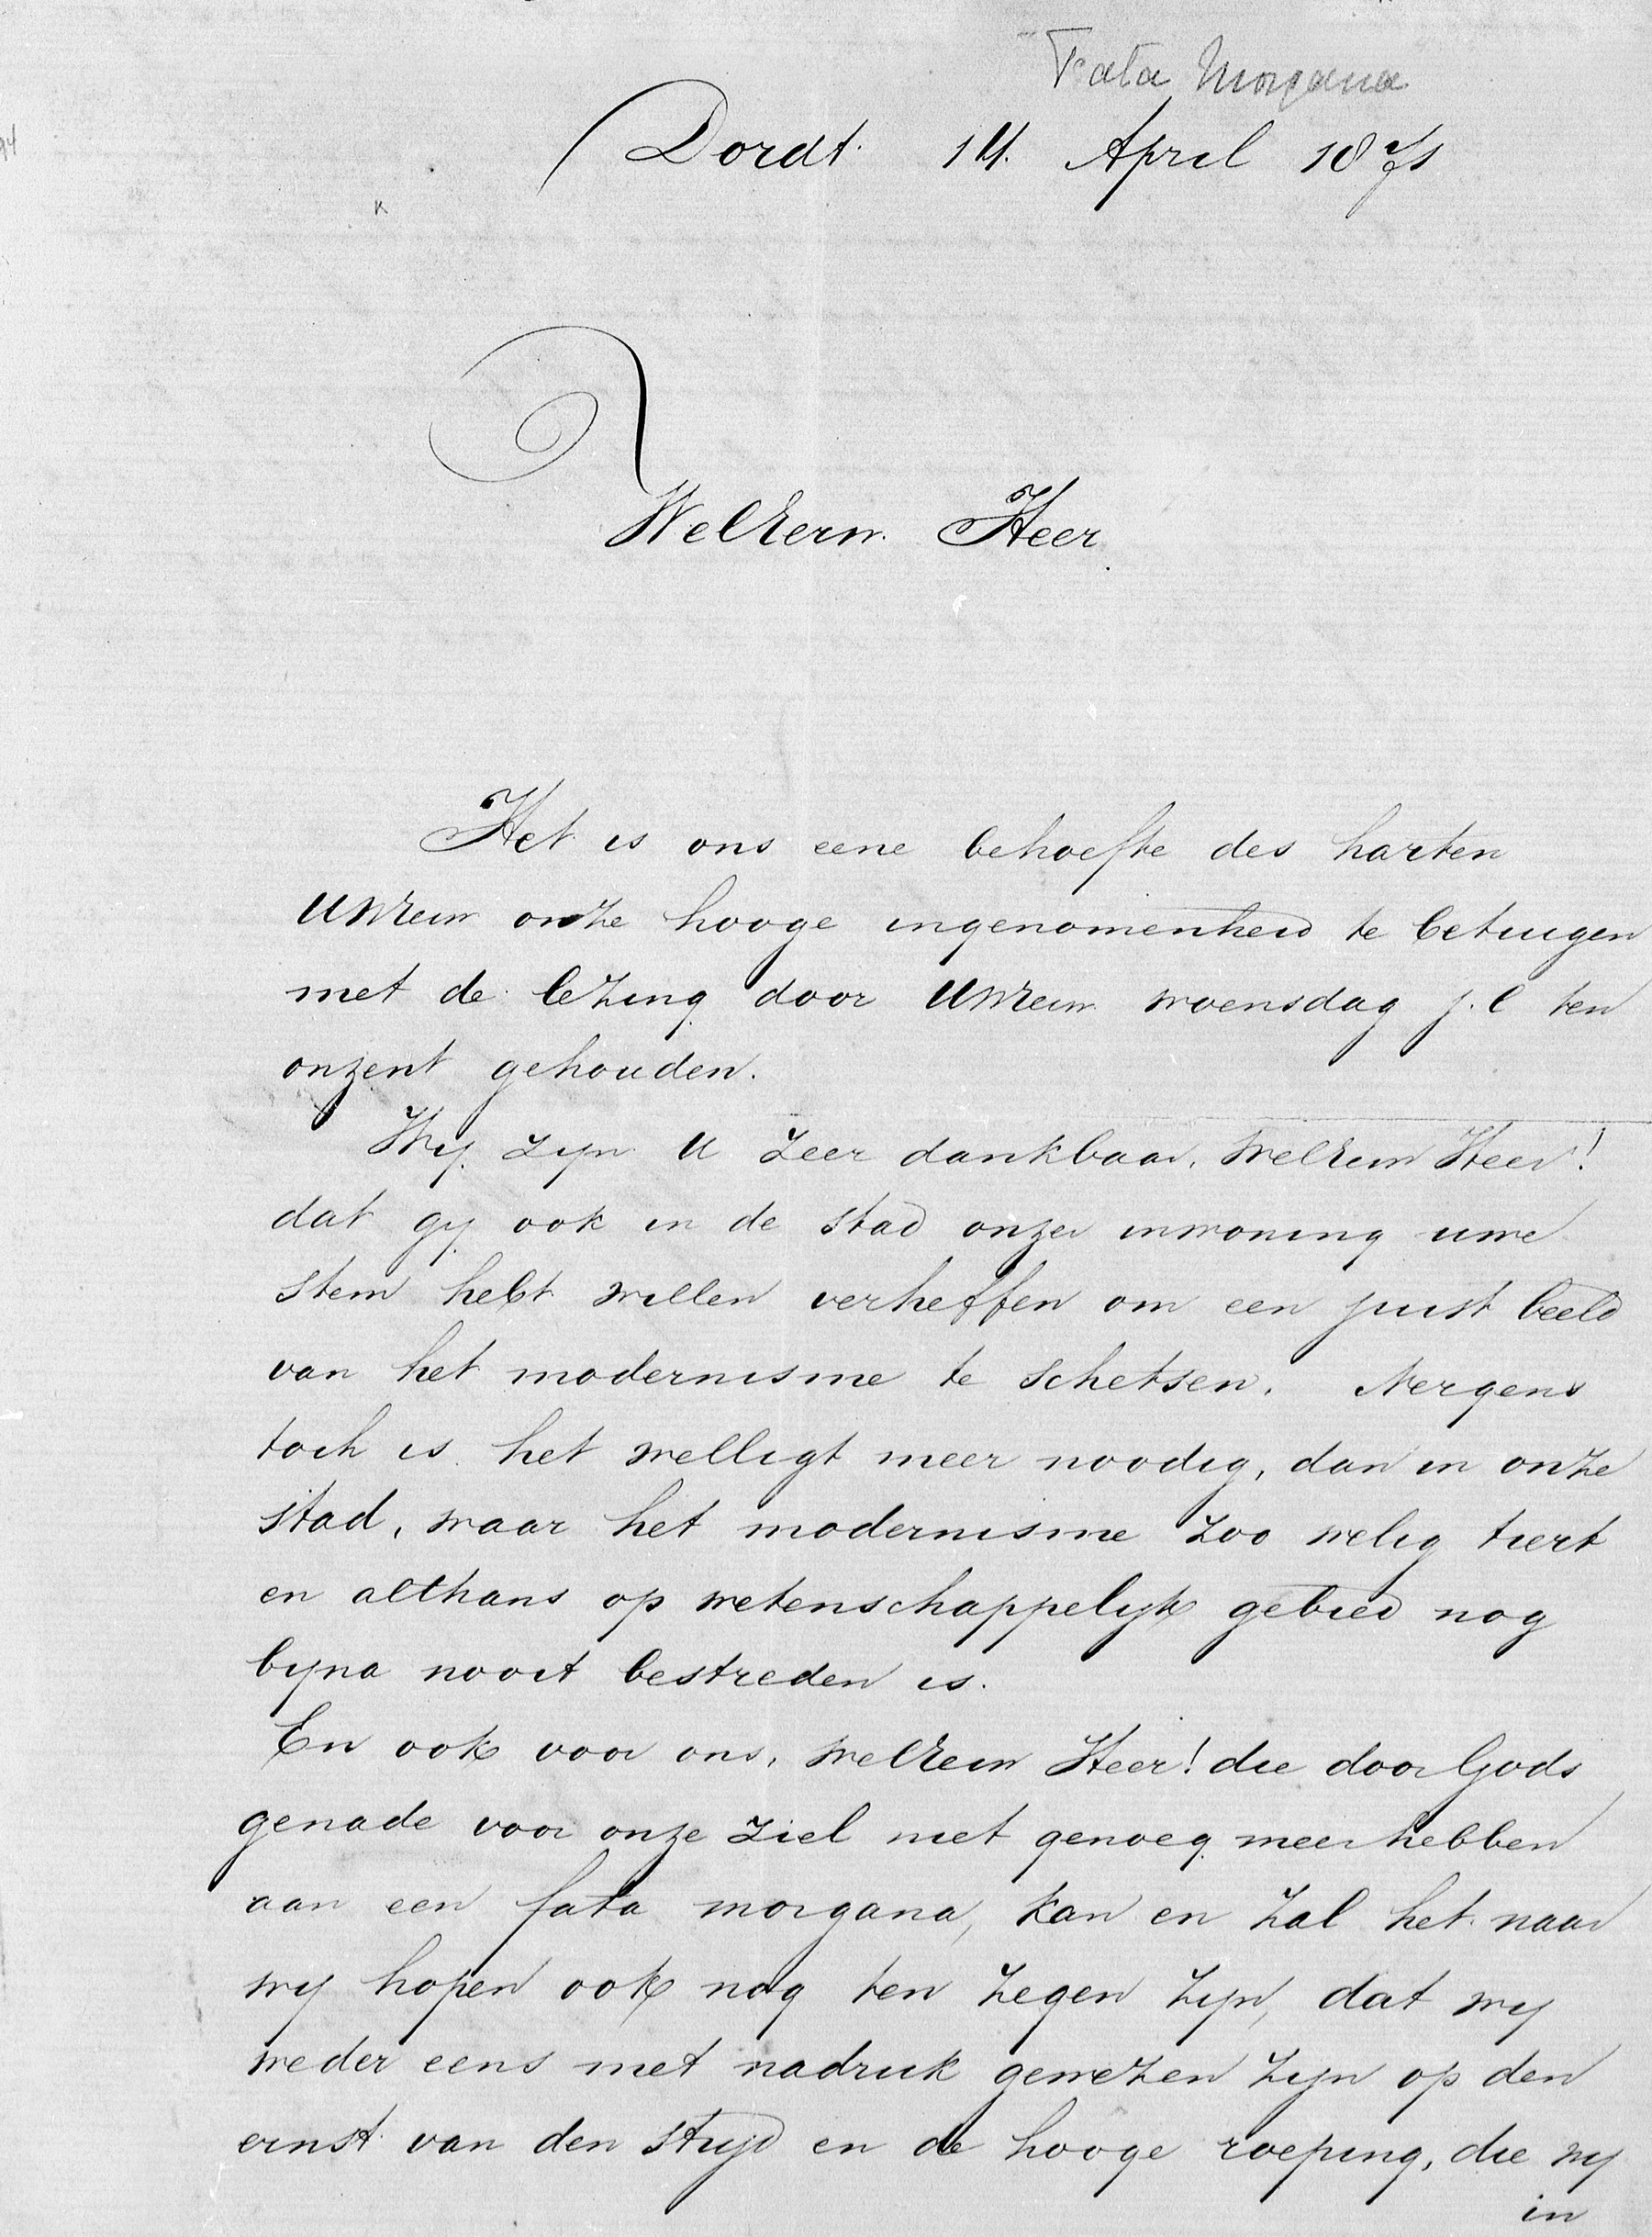 Fata Morgana
Dordt. 14. April 1871
WelEerw. Heer.
Het is ons eene behoefte des harten
UWEerw onze hooge ingenomenheid te betuigen
met de lezing door UWEerw. woensdag j.l ten
onzent gehouden.
Wij zijn U zeer dankbaar, WelEerw Heer!
dat gij ook in de stad onzer inwoning uwe
stem hebt willen verheffen om een juist beeld
van het modernisme te schetsen. Nergens
toch is het welligt meer noodig, dan in onze
stad, waar het modernisme zoo welig tiert
en althans op wetenschappelijk gebied nog
bijna nooit bestreden is.
En ook voor ons, WelEerw Heer! die door Gods
genade voor onze ziel niet genoeg meer hebben
aan een fata morgana, kan en zal het naar
wij hopen ook nog ten zegen zijn, dat wij
weder eens met nadruk gewezen zijn op den
ernst van den strijd en de hooge roeping, die wij
in